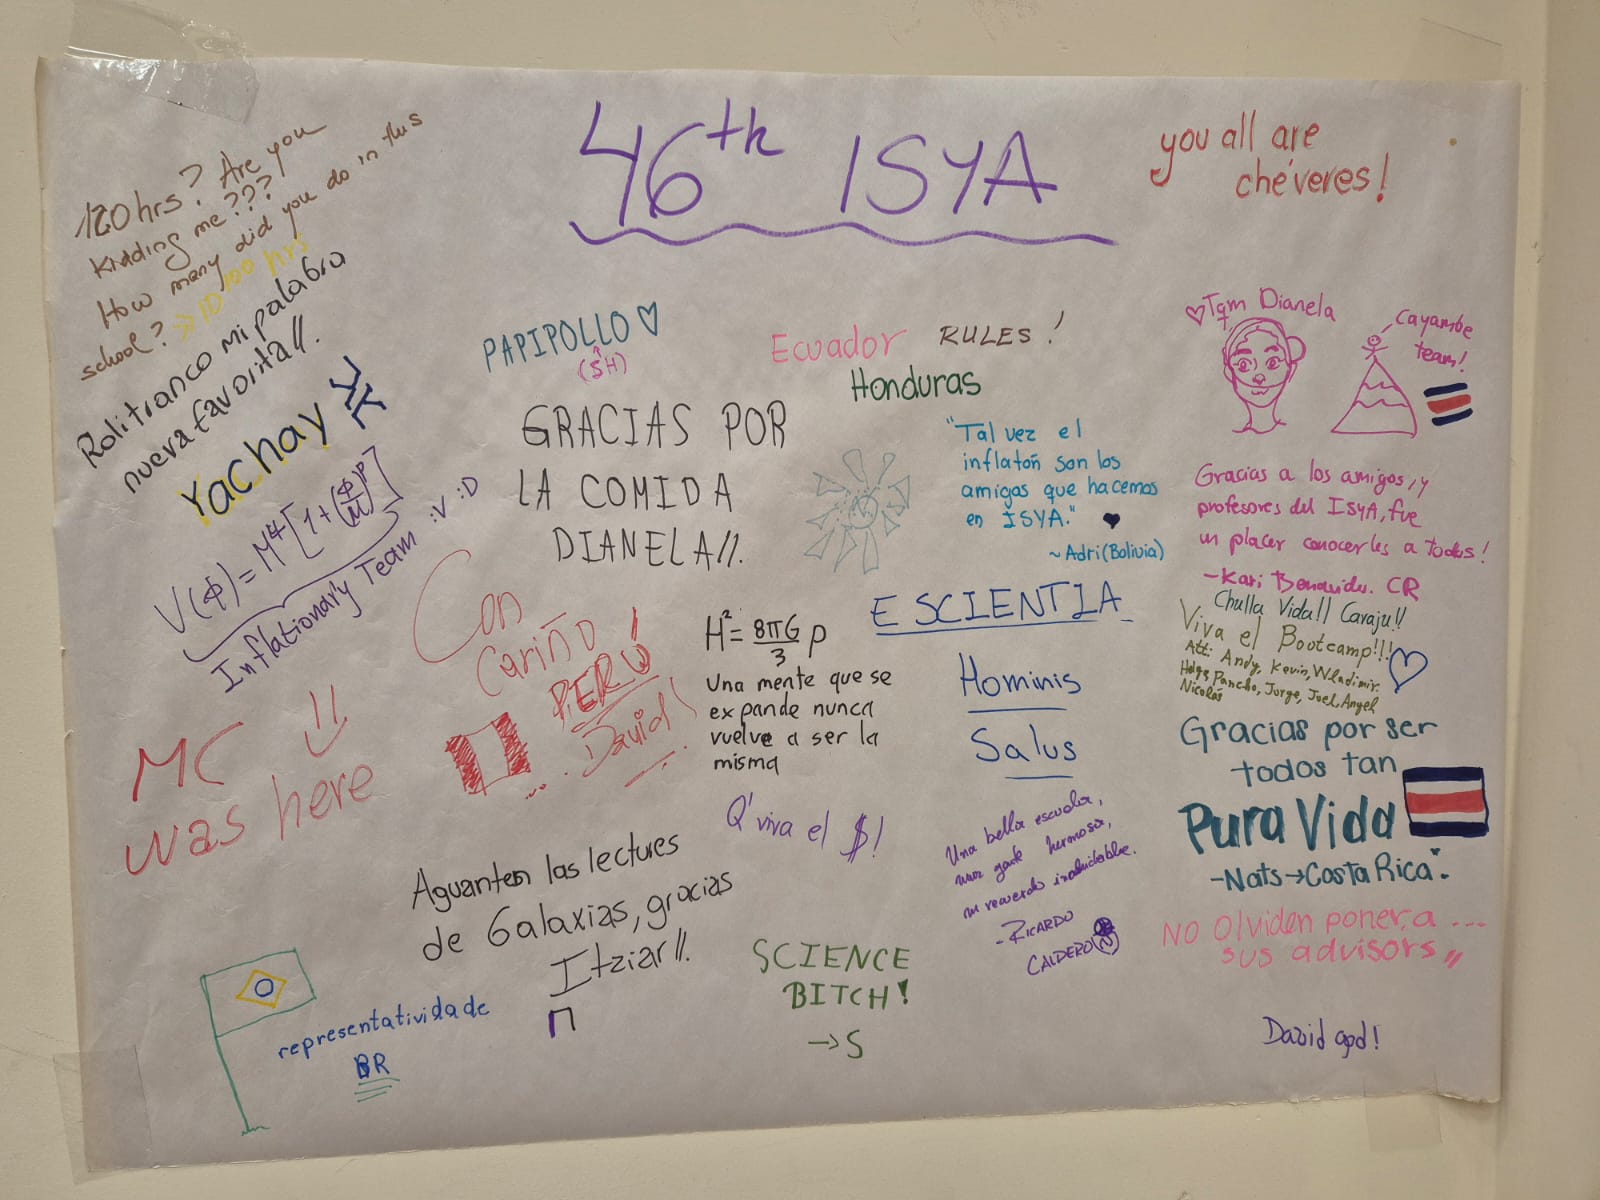 46th ISYA
you all are
chéveres!
120hrs? Are you
kidding me???
How many did you do in this
school? >> 1000 hrs
Rolitranco mi palabra
nueva favorita//.
Yachay
V(ϕ)=M⁴[1+(ϕ/M)^p]
Inflationary Team :V :D
PAPIPOLLO ♡
(SH)
GRACIAS POR
LA COMIDA
DIANELA//.
Ecuador RULES!
Honduras
"Tal vez el
inflatoñ son los
amigos que hacemos
en ISYA." ♥
~Adri (Bolivia)
♡Tqm Dianela
Cayambe
team!
Gracias a los amigos, y
profesores del ISYA, fue
un placer conocerles a todos!
-Kari Benavides. CR
Chulla Vida!! Caraju!!
Viva el Bootcamp!!!
Att: Andy, Kevin, Wladimir.
Pancho, Jorge, Joel, Angel
Nicolás
Con
cariño
PERÚ!
David
H²=8πG/3 ρ
Una mente que se
expande nunca
vuelve a ser la
misma
E SCIENTIA
Hominis
Salus
MC
was here
Gracias por ser
todos tan
Pura Vida
-Nats→Costa Rica.
Q' viva el $!
Una bella escuela,
una gente hermosa,
un recuerdo inolvidable.
-RICARDO
CALDERÓN
Aguanten las lectures
de Galaxias, gracias
Itziar//.
SCIENCE
BITCH!
→S
NO Olviden poner a ...
sus advisors,,
representatividade
BR
David god!